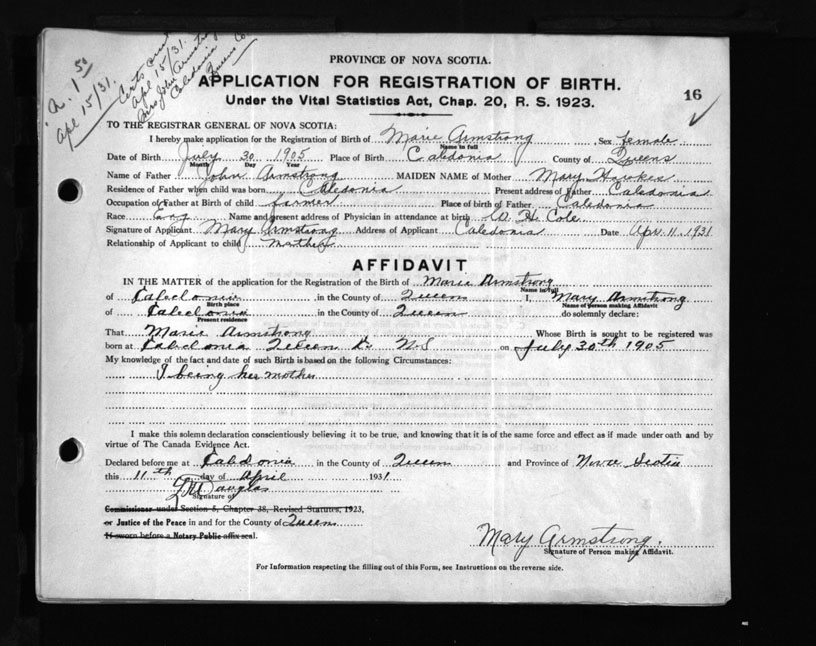 A. 1.50
Apl 15/31.
Certs
Apl 15/31.
Mrs John Armstrong
Caledonia
Queens Co
PROVINCE OF NOVA SCOTIA.
APPLICATION FOR REGISTRATION OF BIRTH.
Under the Vital Statistics Act, Chap. 20, R. S. 1923.
16
TO THE REGISTRAR GENERAL OF NOVA SCOTIA:
I hereby make application for the Registration of Birth of Marie Armstrong Sex female
Name in full
Date of Birth July 30 1905 Place of Birth Caledonia County of Queens
Month Day Year
Name of Father John Armstrong MAIDEN NAME of Mother Mary Hawkes
Residence of Father when child was born Caledonia Present address of Father Caledonia
Occupation of Father at Birth of child farmer Place of birth of Father Caledonia
Race Eng Name and present address of Physician in attendance at birth W. H. Cole
Signature of Applicant Mary Armstrong Address of Applicant Caledonia Date Apr. 11. 1931
Relationship of Applicant to child Mother
AFFIDAVIT
IN THE MATTER of the application for the Registration of the Birth of Marie Armstrong
Name in full
of Caledonia in the County of Queen I, Mary Armstrong
Birth place Name of Person making Affidavit
of Caledonia in the County of Queen do solemnly declare:
Present residence
That Marie Armstrong Whose Birth is sought to be registered was
born at Caledonia Queen Co N.S on July 30th 1905
My knowledge of the fact and date of such Birth is based on the following Circumstances:
I being her mother
I make this solemn declaration conscientiously believing it to be true, and knowing that it is of the same force and effect as if made under oath and by
virtue of The Canada Evidence Act.
Declared before me at Caledonia in the County of Queen and Province of Nova Scotia
this 11th day of April 1931
Douglas
Signature of
Commissioner under Section 5, Chapter 38, Revised Statutes, 1923,
or Justice of the Peace in and for the County of Queen
If sworn before a Notary Public affix seal.
Mary Armstrong.
Signature of Person making Affidavit.
For Information respecting the filling out of this Form, see Instructions on the reverse side.